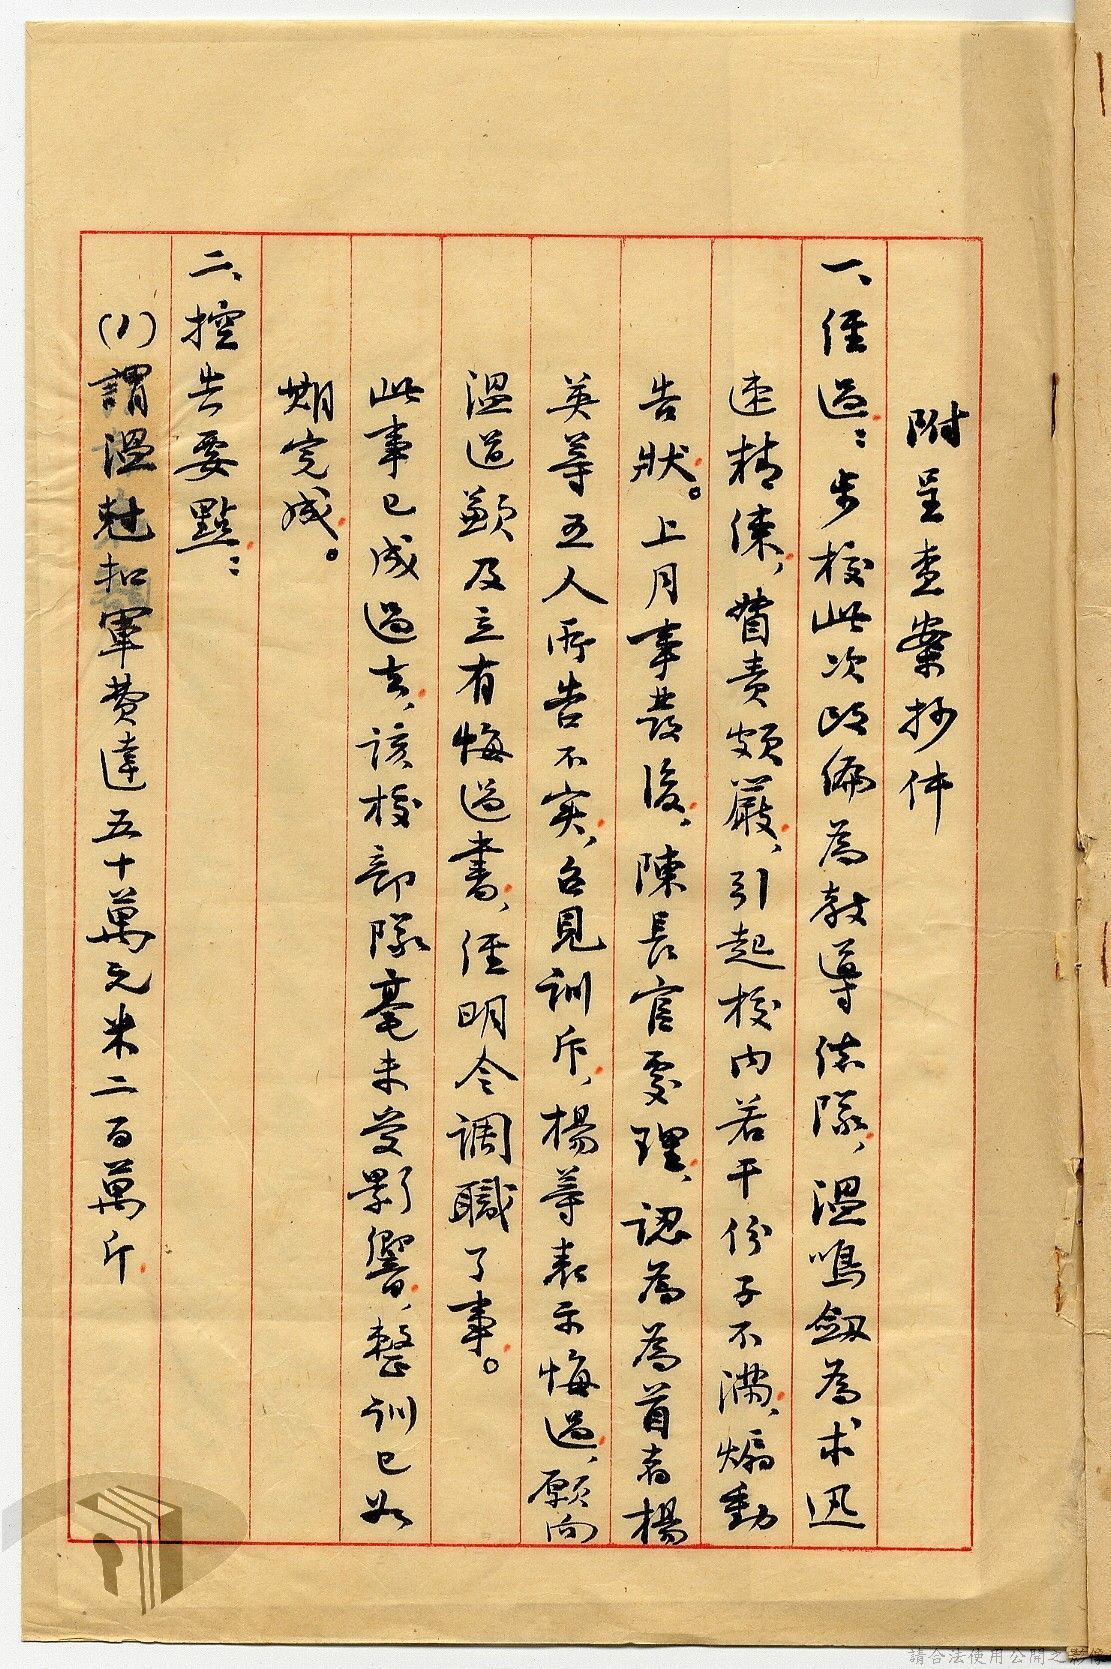 附呈查案抄件
一、經過：步校此次改編為教導總隊，溫鳴劍為求迅
速精練，督責頗嚴，引起校內若干份子不滿，煽動
告狀。上月事發後，陳長官處理，認為為首者楊
英等五人所告不實，召見訓斥，楊等表示悔過，願向
溫道歉及立有悔過書，經明令調職了事。
此事已成過去，該校部隊毫未受影響，整訓已如
期完成。
二、控告要點：
(1)謂溫剋扣軍費達五十萬元米二百萬斤.
請合法使用公開之影像